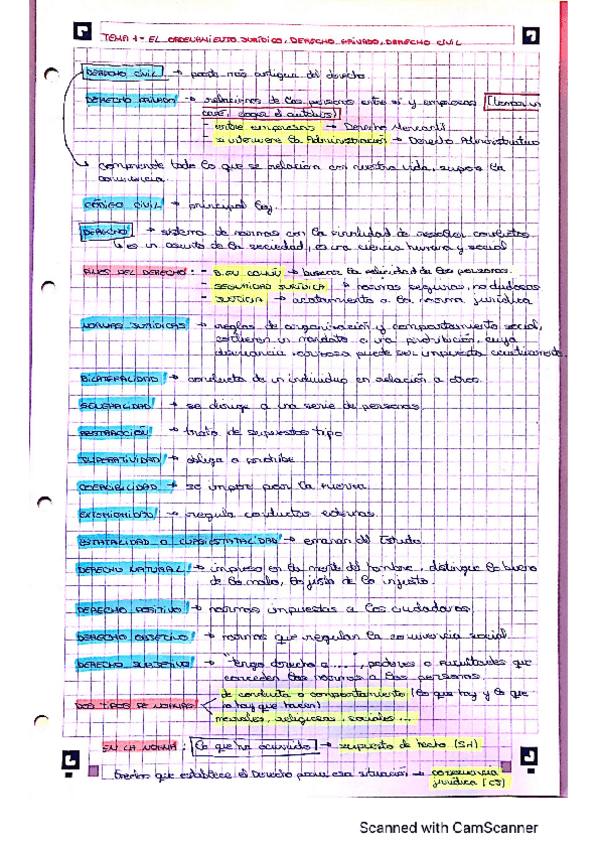 TEMA 1- EL ORDENAMIENTO JURÍDICO, DERECHO PRIVADO, DERECHO CIVIL
DERECHO CIVIL → parte más antigua del derecho.
DERECHO PRIVADO → relaciones de las personas entre sí y empresas
- entre empresarios → Derecho Mercantil
- si interviene la Administración → Derecho Administrativo
comprende todo lo que se relaciona con nuestra vida, supone la
convivencia.
CÓDIGO CIVIL → principal ley.
DERECHO → sistema de normas con la finalidad de resolver conflictos
↳ es un asunto de la sociedad, es una ciencia humana y social
FINES DEL DERECHO: - BIEN COMÚN → buscar la felicidad de las personas.
- SEGURIDAD JURÍDICA → normas seguras, no dudosas
- JUSTICIA → acatamiento a la norma jurídica
NORMAS JURÍDICAS → reglas de organización y comportamiento social,
contienen un mandato o una prohibición, cuya
puede ser impuesta coactivamente.
BILATERALIDAD → conducta de un individuo en relación a otro.
GENERALIDAD → se dirige a una serie de personas.
ABSTRACCIÓN → trata de supuestos tipo
IMPERATIVIDAD → obliga o prohíbe
COERCIBILIDAD → se impone por la fuerza
EXTERIORIDAD → regula conductas externas.
ESTATALIDAD O CUASIESTATALIDAD → emanan del Estado.
DERECHO NATURAL → impreso en la mente del hombre, distingue lo bueno
de lo malo, lo justo de lo injusto.
DERECHO POSITIVO → normas impuestas a los ciudadanos
DERECHO OBJETIVO → normas que regulan la convivencia social
DERECHO SUBJETIVO → "tengo derecho a ...", poderes o facultades que
conceden las normas a las personas.
DOS TIPOS DE NORMAS
de conducta o comportamiento (lo que hay y lo que
no hay que hacer)
morales, religiosas, sociales...
EN LA NORMA: Lo que ha ocurrido → supuesto de hecho (SH)
Efectos que establece el Derecho para esa situación → consecuencia
jurídica (CJ)
Scanned with CamScanner